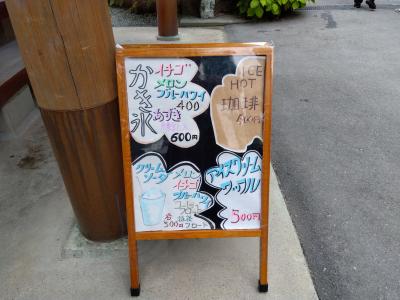 かき氷
イチゴ
メロン
ブルーハワイ
400
あずき
600円
ICE
HOT
珈琲
400円
クリーム
ソーダ
メロン
イチゴ
ブルーハワイ
コーヒー
フロート
各
500円フロート
アイスクリーム
ワッフル
500円